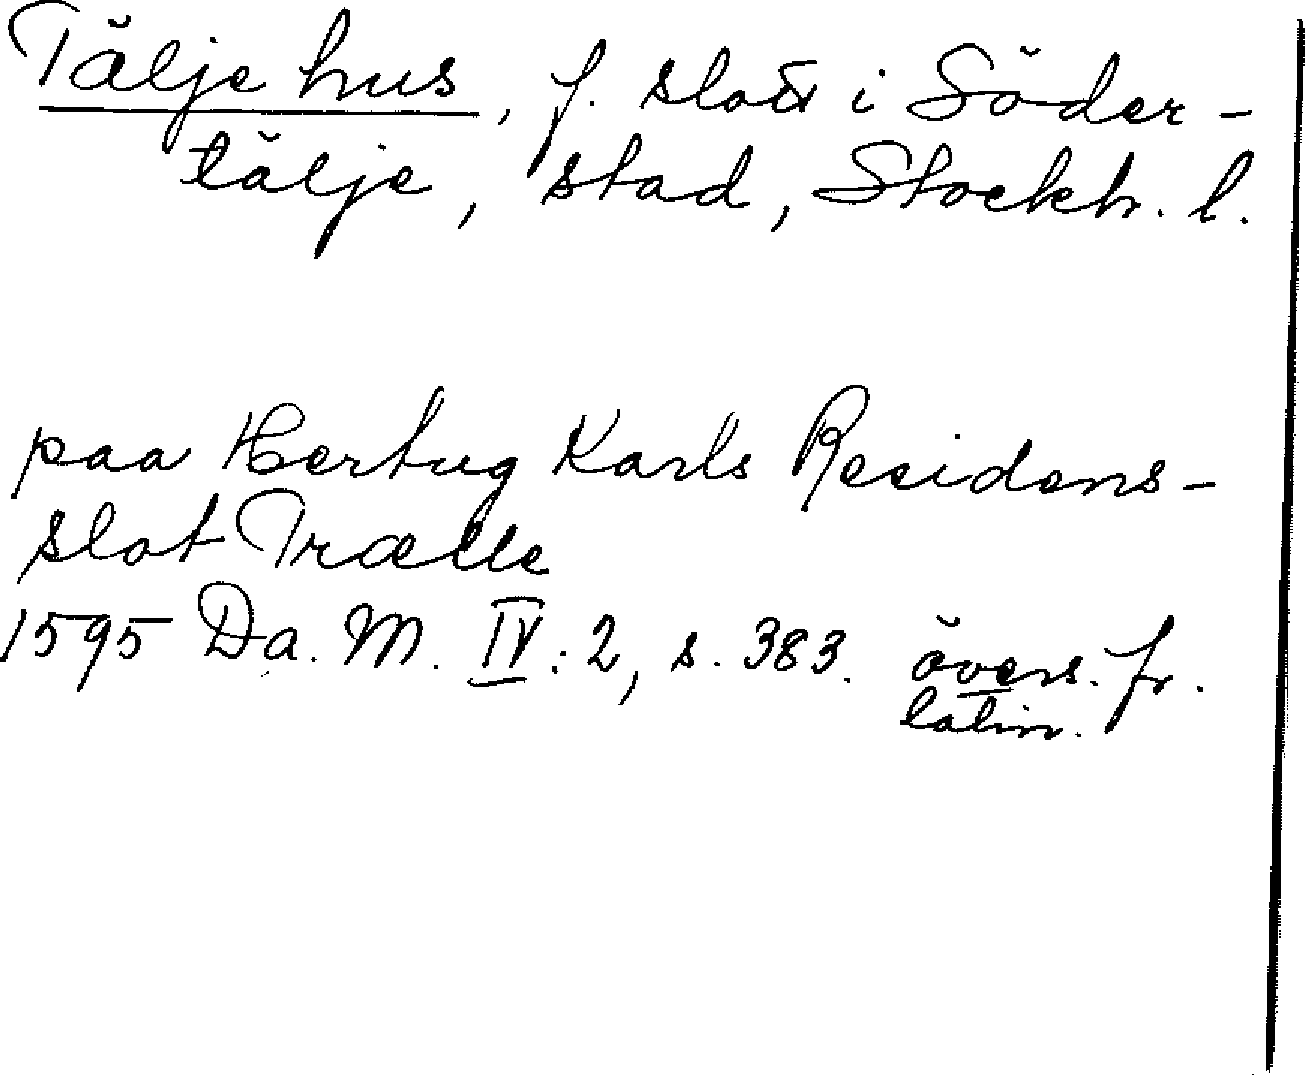 Tälje hus, f. slott i Söder-
tälje, stad, Stockh. l.
paa Hertug Karls Residens-
slot Trælle
1595 Da. M. IV: 2, s. 383. övers. fr.
latin.